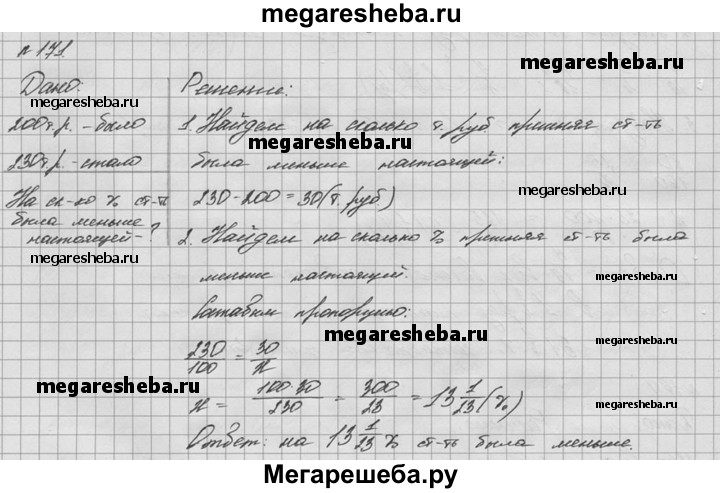 megaresheba.ru
№ 171.
megaresheba.ru
Дано:
megaresheba.ru
200 т.р. - было
230 т.р. - стало
На ск-ко % ст-ть
была меньше
настоящей - ?
Решение:
1. Найдем на сколько т. руб прежняя ст-ть
megaresheba.ru
была меньше настоящей:
megaresheba.ru
230 - 200 = 30 (т. руб)
2. Найдем на сколько % прежняя ст-ть была
меньше настоящей.
megaresheba.ru
Составим пропорцию:
megaresheba.ru
230/100 = 30/x
megaresheba.ru
x = 100·30/230 = 300/23 = 13 1/23 (%)
megaresheba.ru
Ответ: на 13 1/23 % ст-ть была меньше.
Мегарешеба.ру